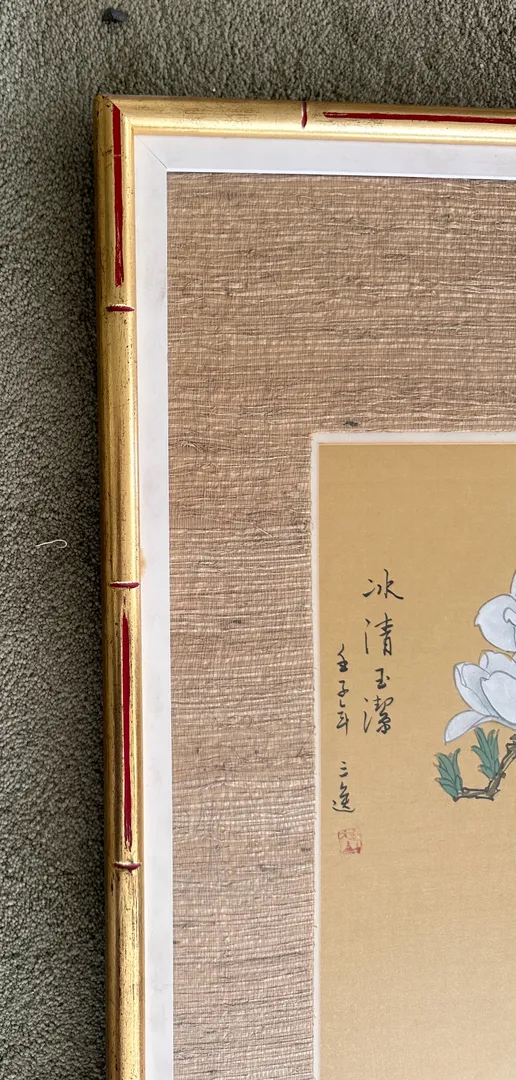 冰清玉潔
壬子年 三進